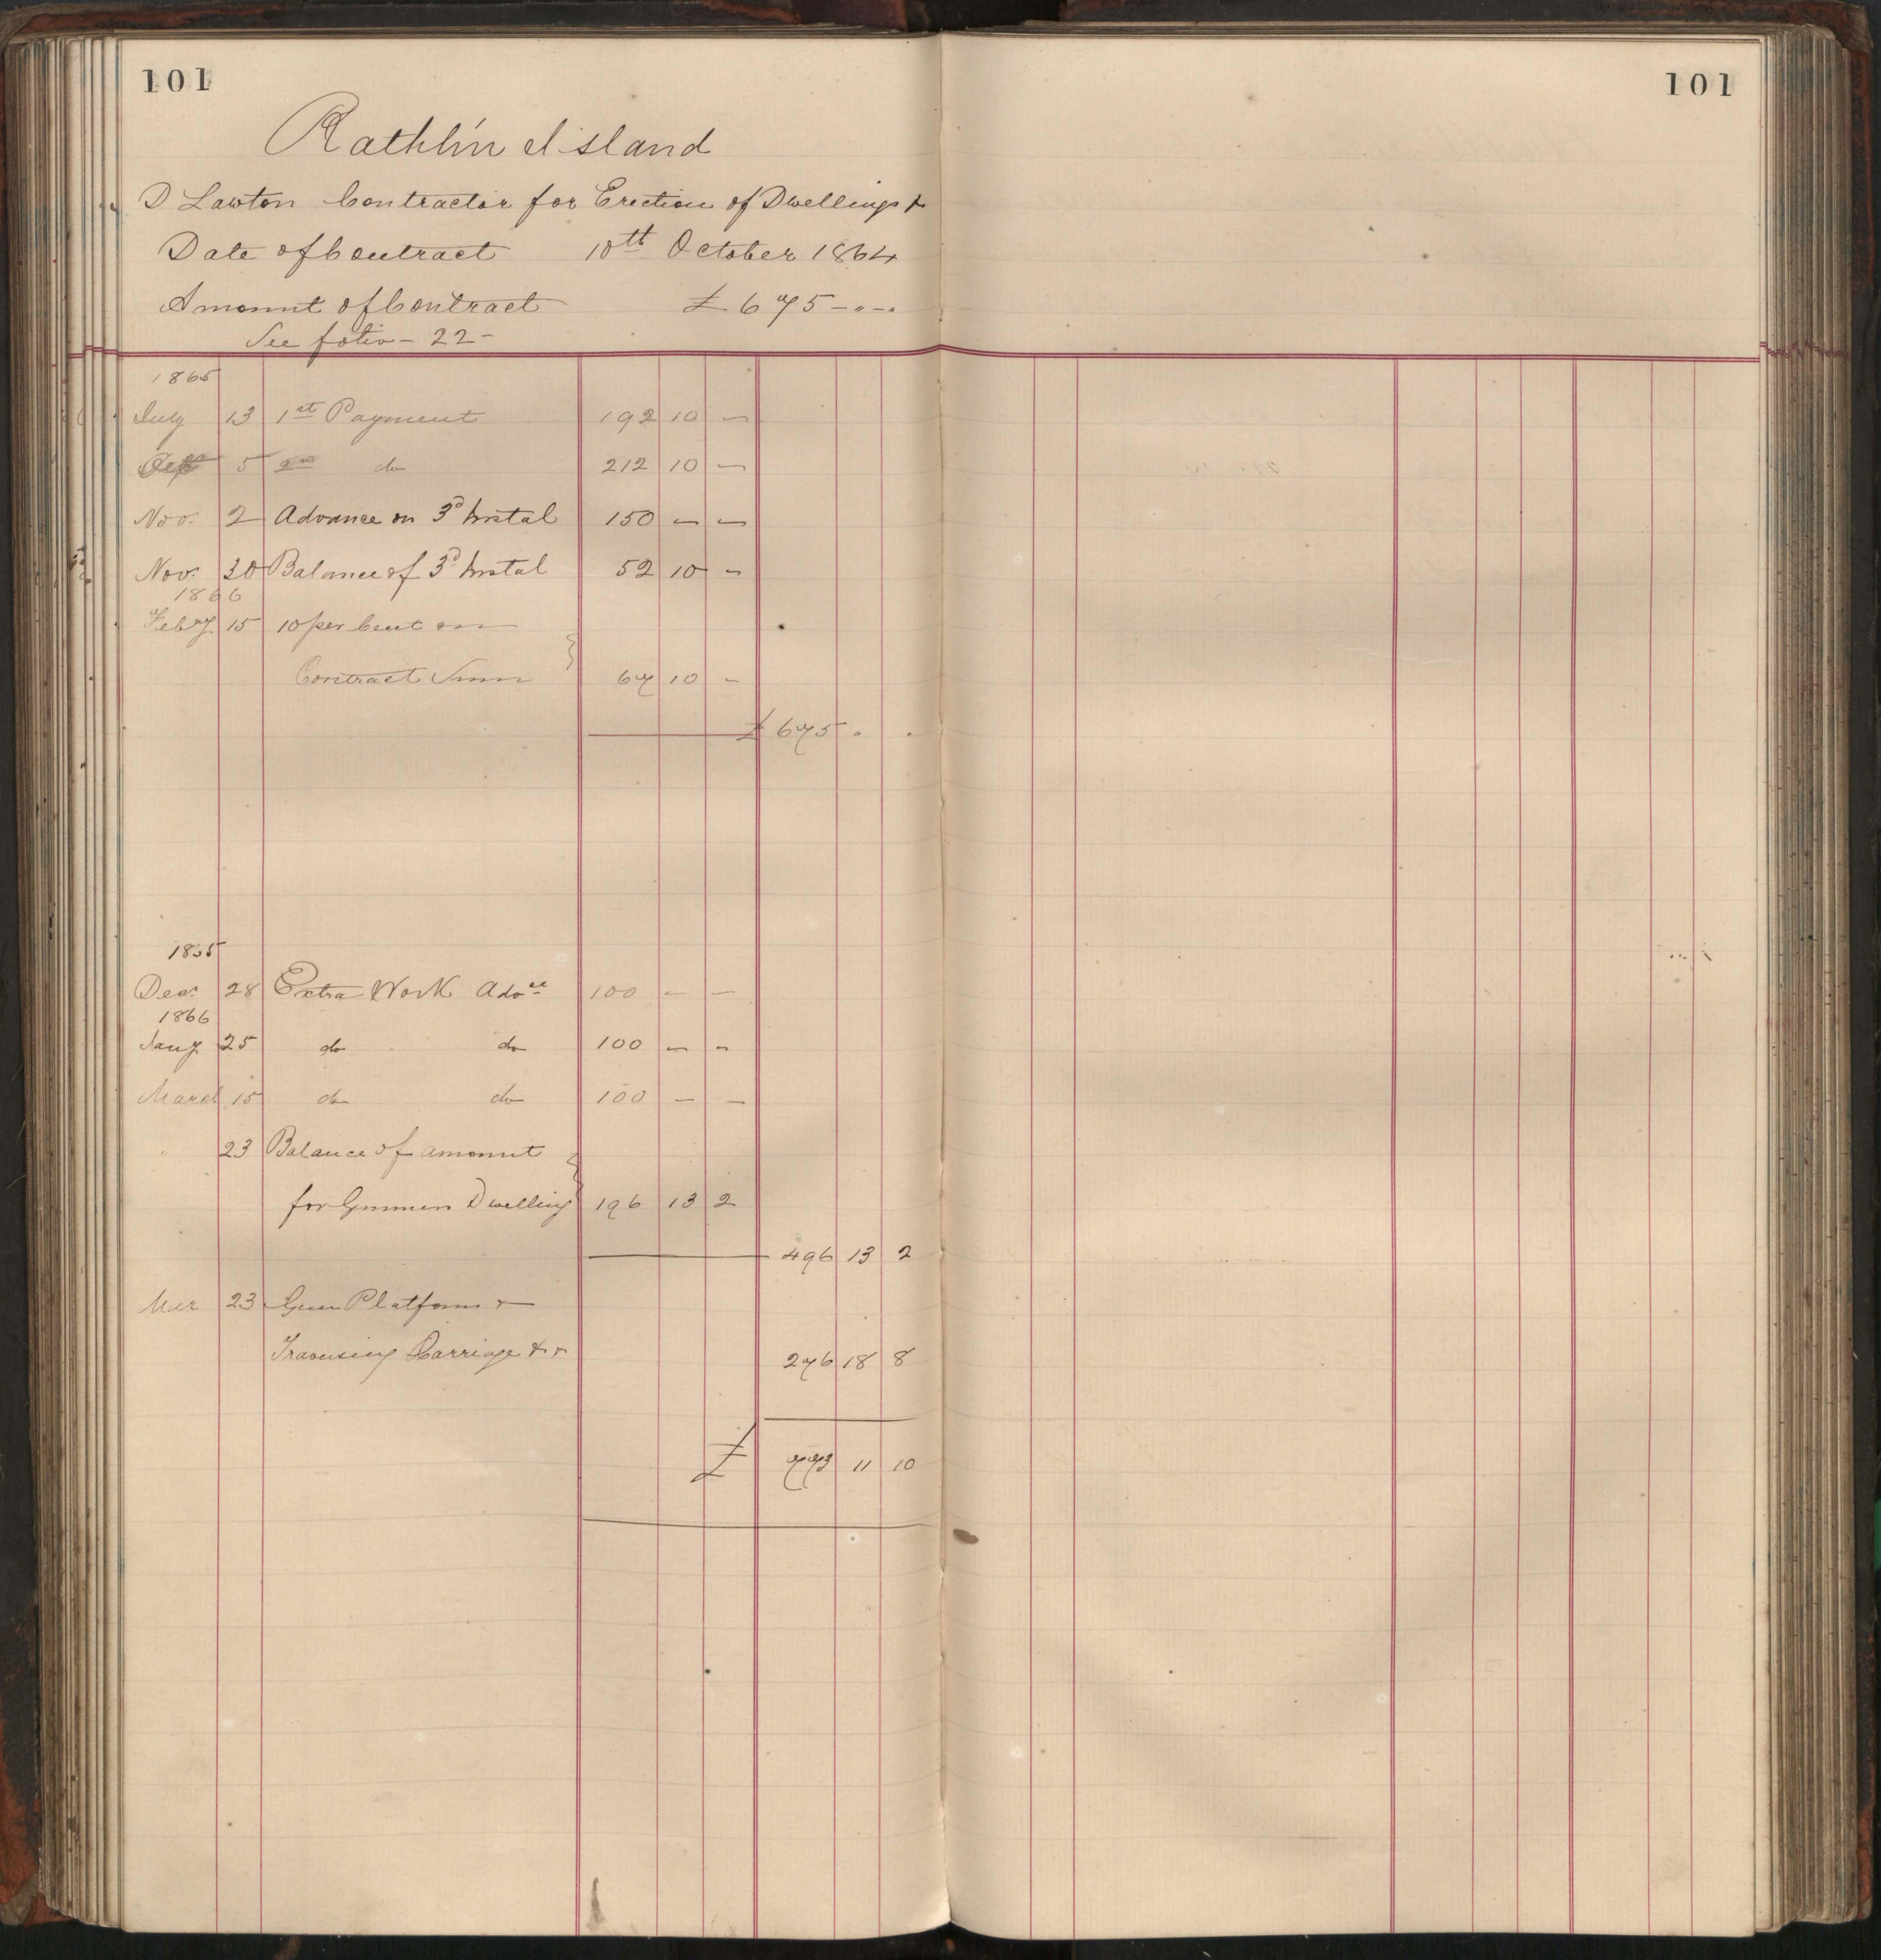 101
101
Rathlin Island
D Lawton Contractor for Erection of Dwellings &
Date of Contract 10th October 1864
Amount of Contract £675-"-"
See folio - 22 -
1865
July 13 1st Payment 192 10 -
Sept 5 2nd do 212 10 -
Nov. 2 Advance on 3d Instal 150 - -
Nov. 30 Balance of 3d Instal 52 10 -
1866
Feby 15 10 per Cent on
Contract Sum 67 10 -
£ 675 " "
1865
Decr 28 Extra Work Advce 100 - -
1866
Jany 25 do do 100 - -
March 15 do do 100 - -
" 23 Balance of amount
for Gunners Dwelling 196 13 2
496 13 2
Mar 23 Gun Platform &
Traversing Carriage & & 276 18 8
£ 773 11 10